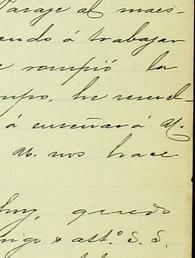 Paraje al maes-
endo á trabajar
e rompió la
mpo, he resuel
á enseñar á U.
U. nos hace
quedo
migo & att.º S. S.